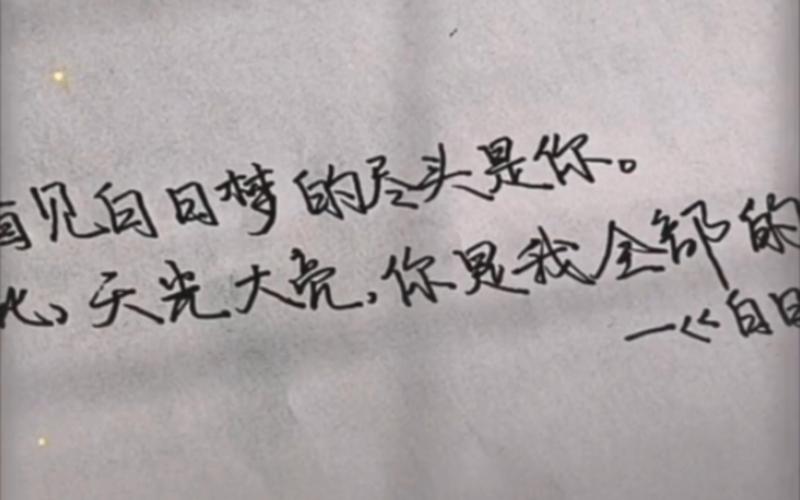 见白日梦的尽头是你。
天光大亮,你是我全部的
—《白日